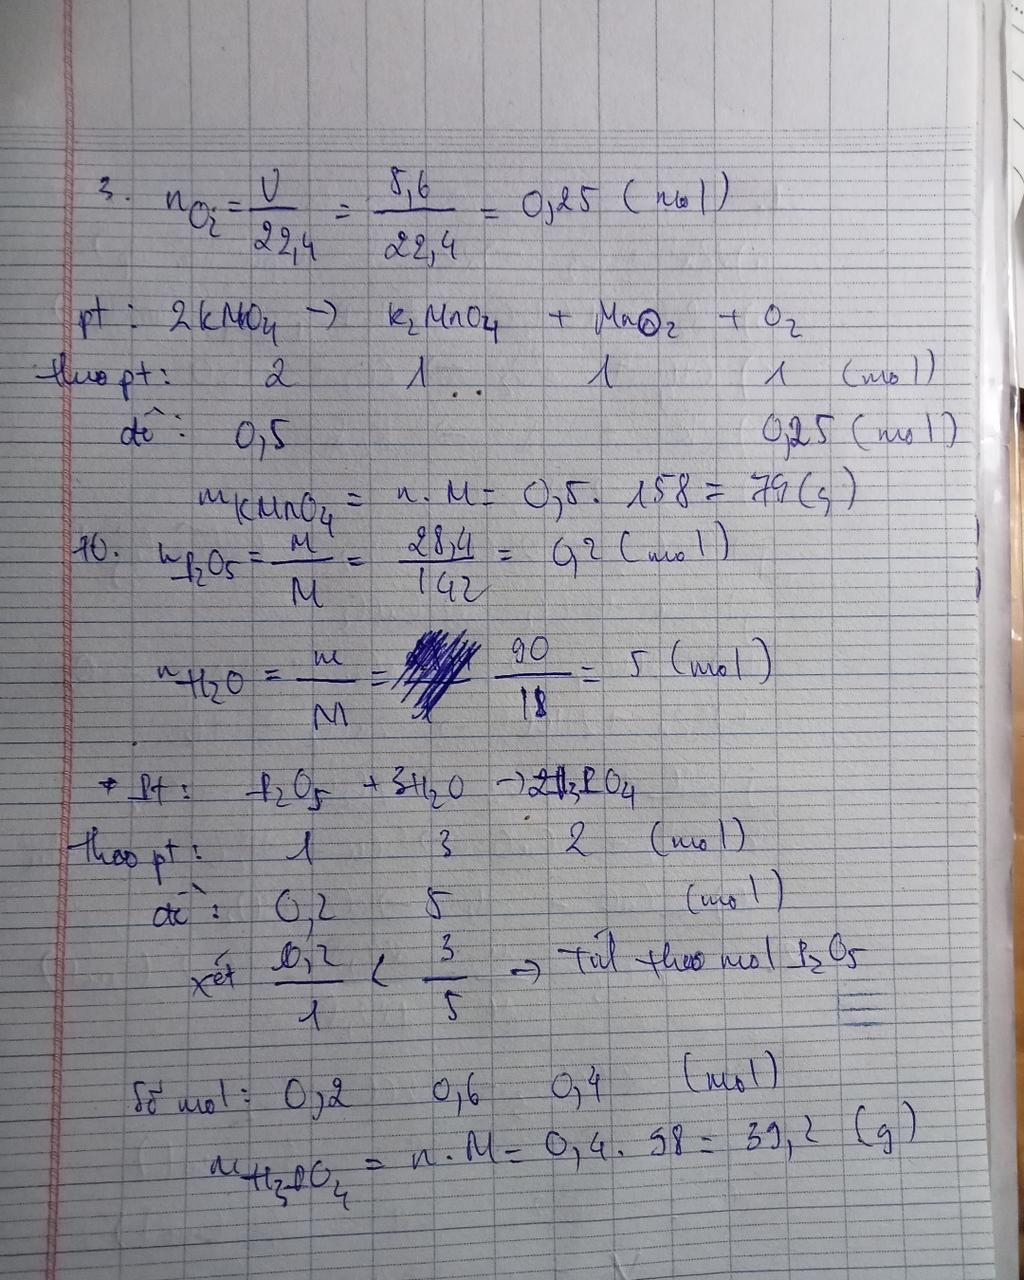 3. nO2 = V/22,4 = 5,6/22,4 = 0,25 (mol)
pt : 2KMnO4 → K2MnO4 + MnO2 + O2
theo pt: 2 1 1 1 (mol)
đề : 0,5 0,25 (mol)
mKMnO4 = n. M = 0,5. 158 = 79 (g)
10. nP2O5 = m/M = 28,4/142 = 0,2 (mol)
nH2O = m/M = 90/18 = 5 (mol)
* Pt : P2O5 + 3H2O → 2H3PO4
theo pt : 1 3 2 (mol)
đề : 0,2 5 (mol)
xét 0,2/1 < 3/5 → Tính theo mol P2O5
Số mol : 0,2 0,6 0,4 (mol)
mH3PO4 = n. M = 0,4. 98 = 39,2 (g)